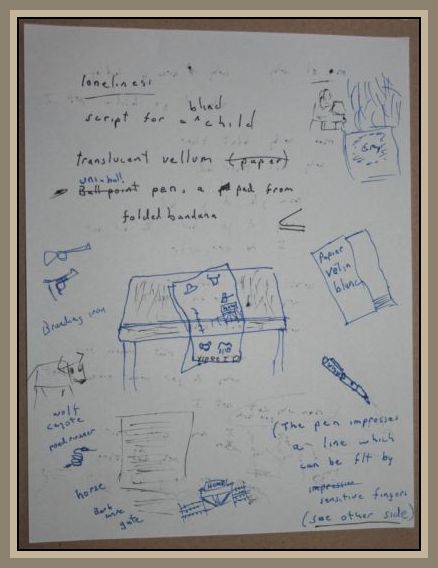 loneliness
script for a ^ blind child
translucent vellum (paper)
uni-ball
Ball point pen, a pad from
folded bandana
Gray
Papier
vélin
blanc
Branding iron
wolf
coyote
roadrunner
horse
Barb
wire
gate
HOME
(The pen impresses
a line which
can be flt by
impressive
sensitive fingers
(see other side)